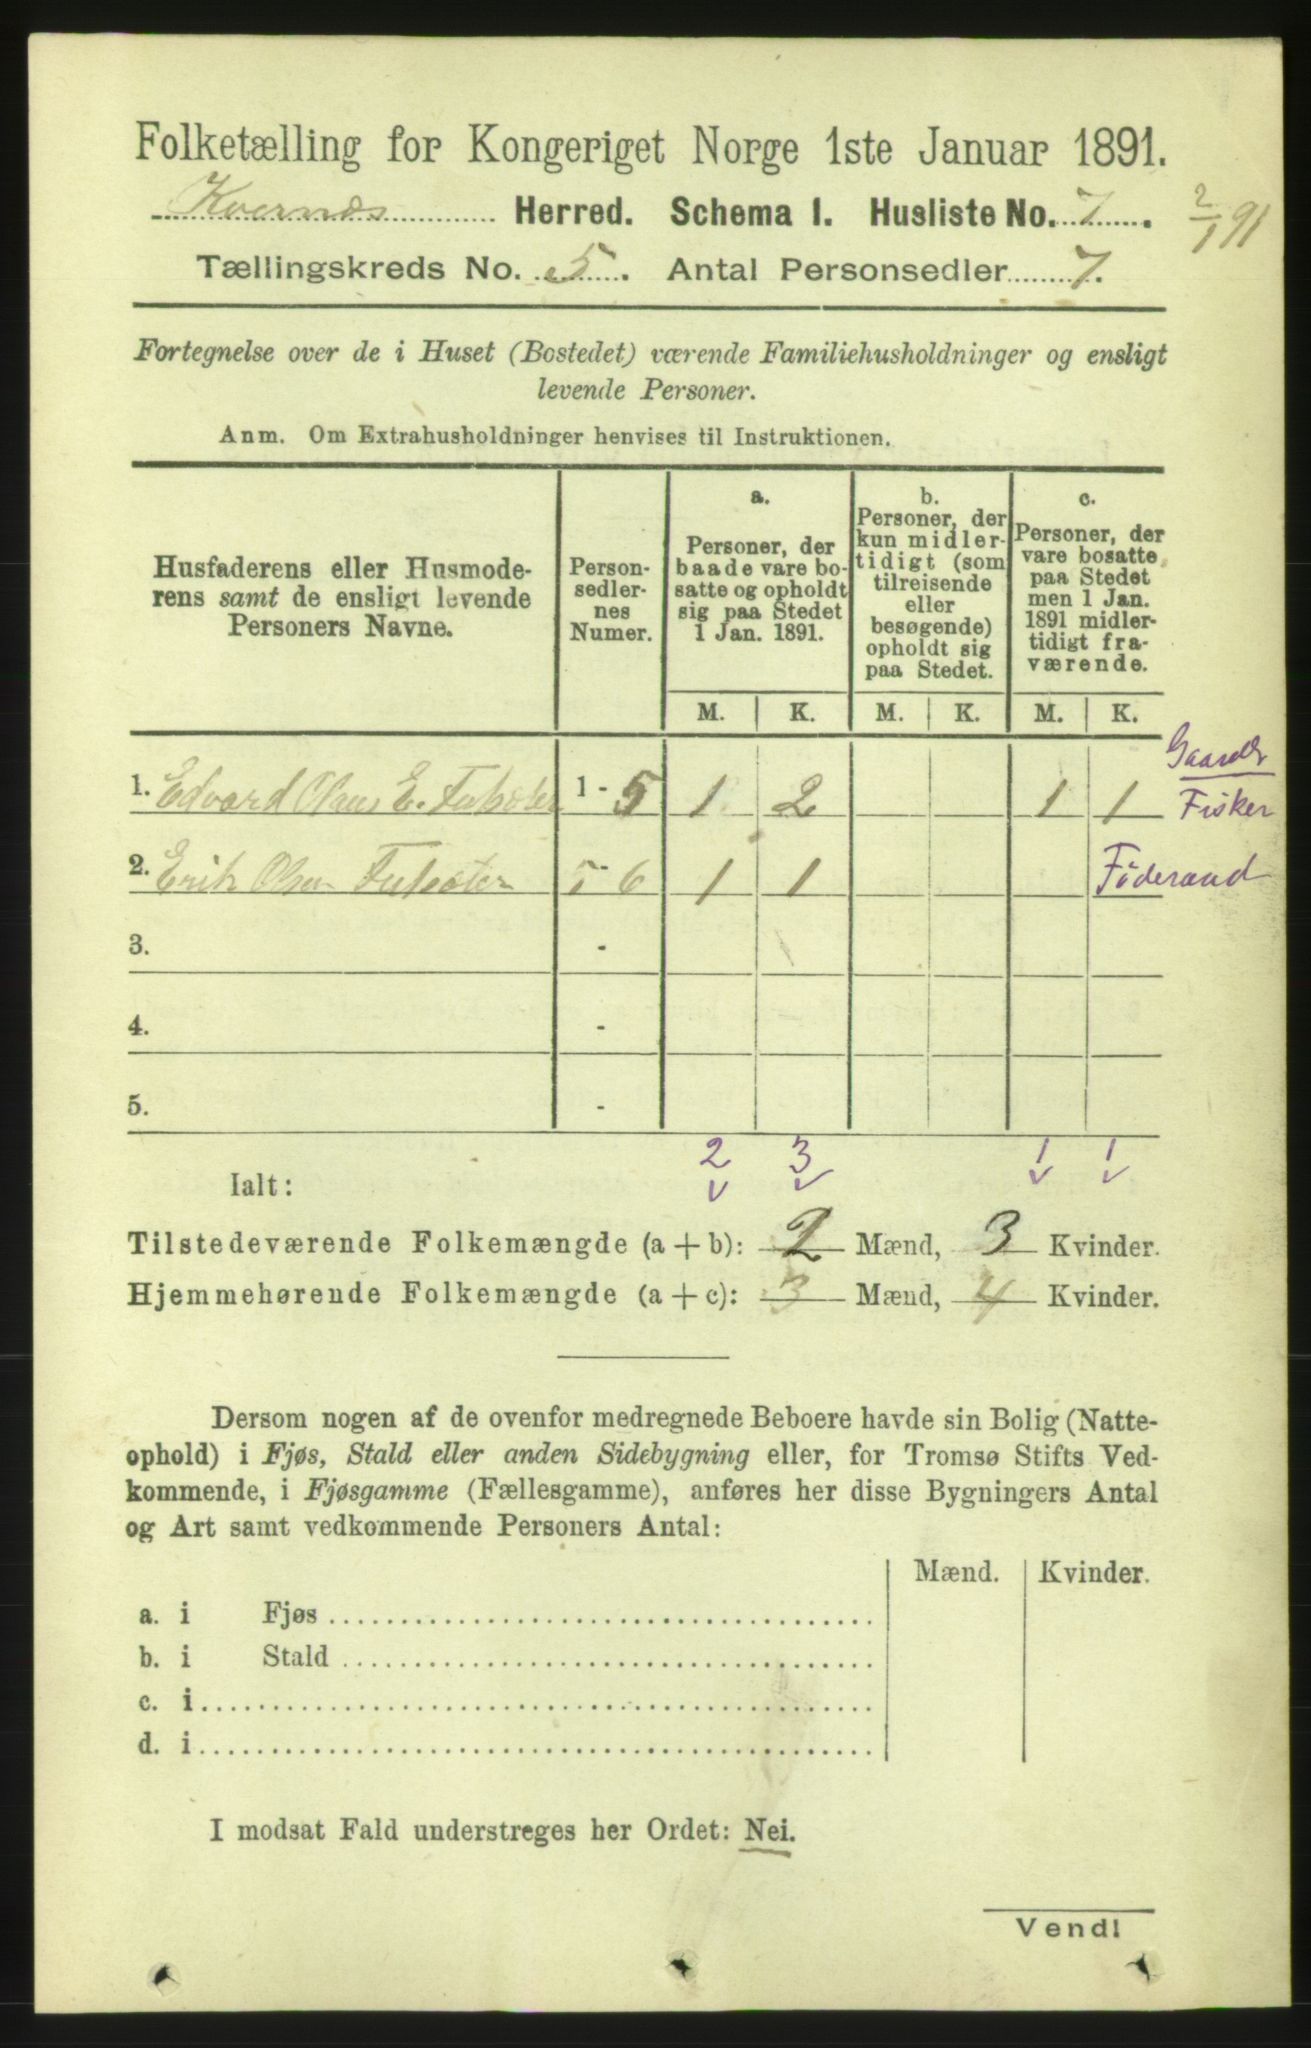 Folketælling for Kongeriget Norge 1ste Januar 1891.
Kvernæs Herred. Schema I. Husliste No. 7. 2/1 91
Tællingskreds No. 5. Antal Personsedler 7.
Fortegnelse over de i Huset (Bostedet) værende Familiehusholdninger og ensligt
levende Personer.
Anm. Om Extrahusholdninger henvises til Instruktionen.
Husfaderens eller Husmode-
rens samt de ensligt levende
Personers Navne.
Person-
sedler-
nes
Numer.
a.
Personer, der
baade vare bo-
satte og opholdt
sig paa Stedet
1 Jan. 1891.
b.
Personer, der
kun midler-
tidigt (som
tilreisende
eller
besøgende)
opholdt sig
paa Stedet.
c.
Personer, der
vare bosatte
paa Stedet
men 1 Jan.
1891 midler-
tidigt fra-
værende.
M. K. M. K. M. K.
1. Edvard Olaus E. 1 - 5 1 2 1 1 Fisker
2. Erik Olsen - 6 1 1 Føderaad
3. -
4. -
5. -
2 3 1 1
Ialt:
Tilstedeværende Folkemængde (a + b): 2 Mænd, 3 Kvinder.
Hjemmehørende Folkemængde (a + c): 3 Mænd, 4 Kvinder.
Dersom nogen af de ovenfor medregnede Beboere havde sin Bolig (Natte-
ophold) i Fjøs, Stald eller anden Sidebygning eller, for Tromsø Stifts Ved-
kommende, i Fjøsgamme (Fællesgamme), anføres her disse Bygningers Antal
og Art samt vedkommende Personers Antal:
Mænd. Kvinder.
a. i Fjøs
b. i Stald
c. i
d. i
I modsat Fald understreges her Ordet: Nei.
Vend!